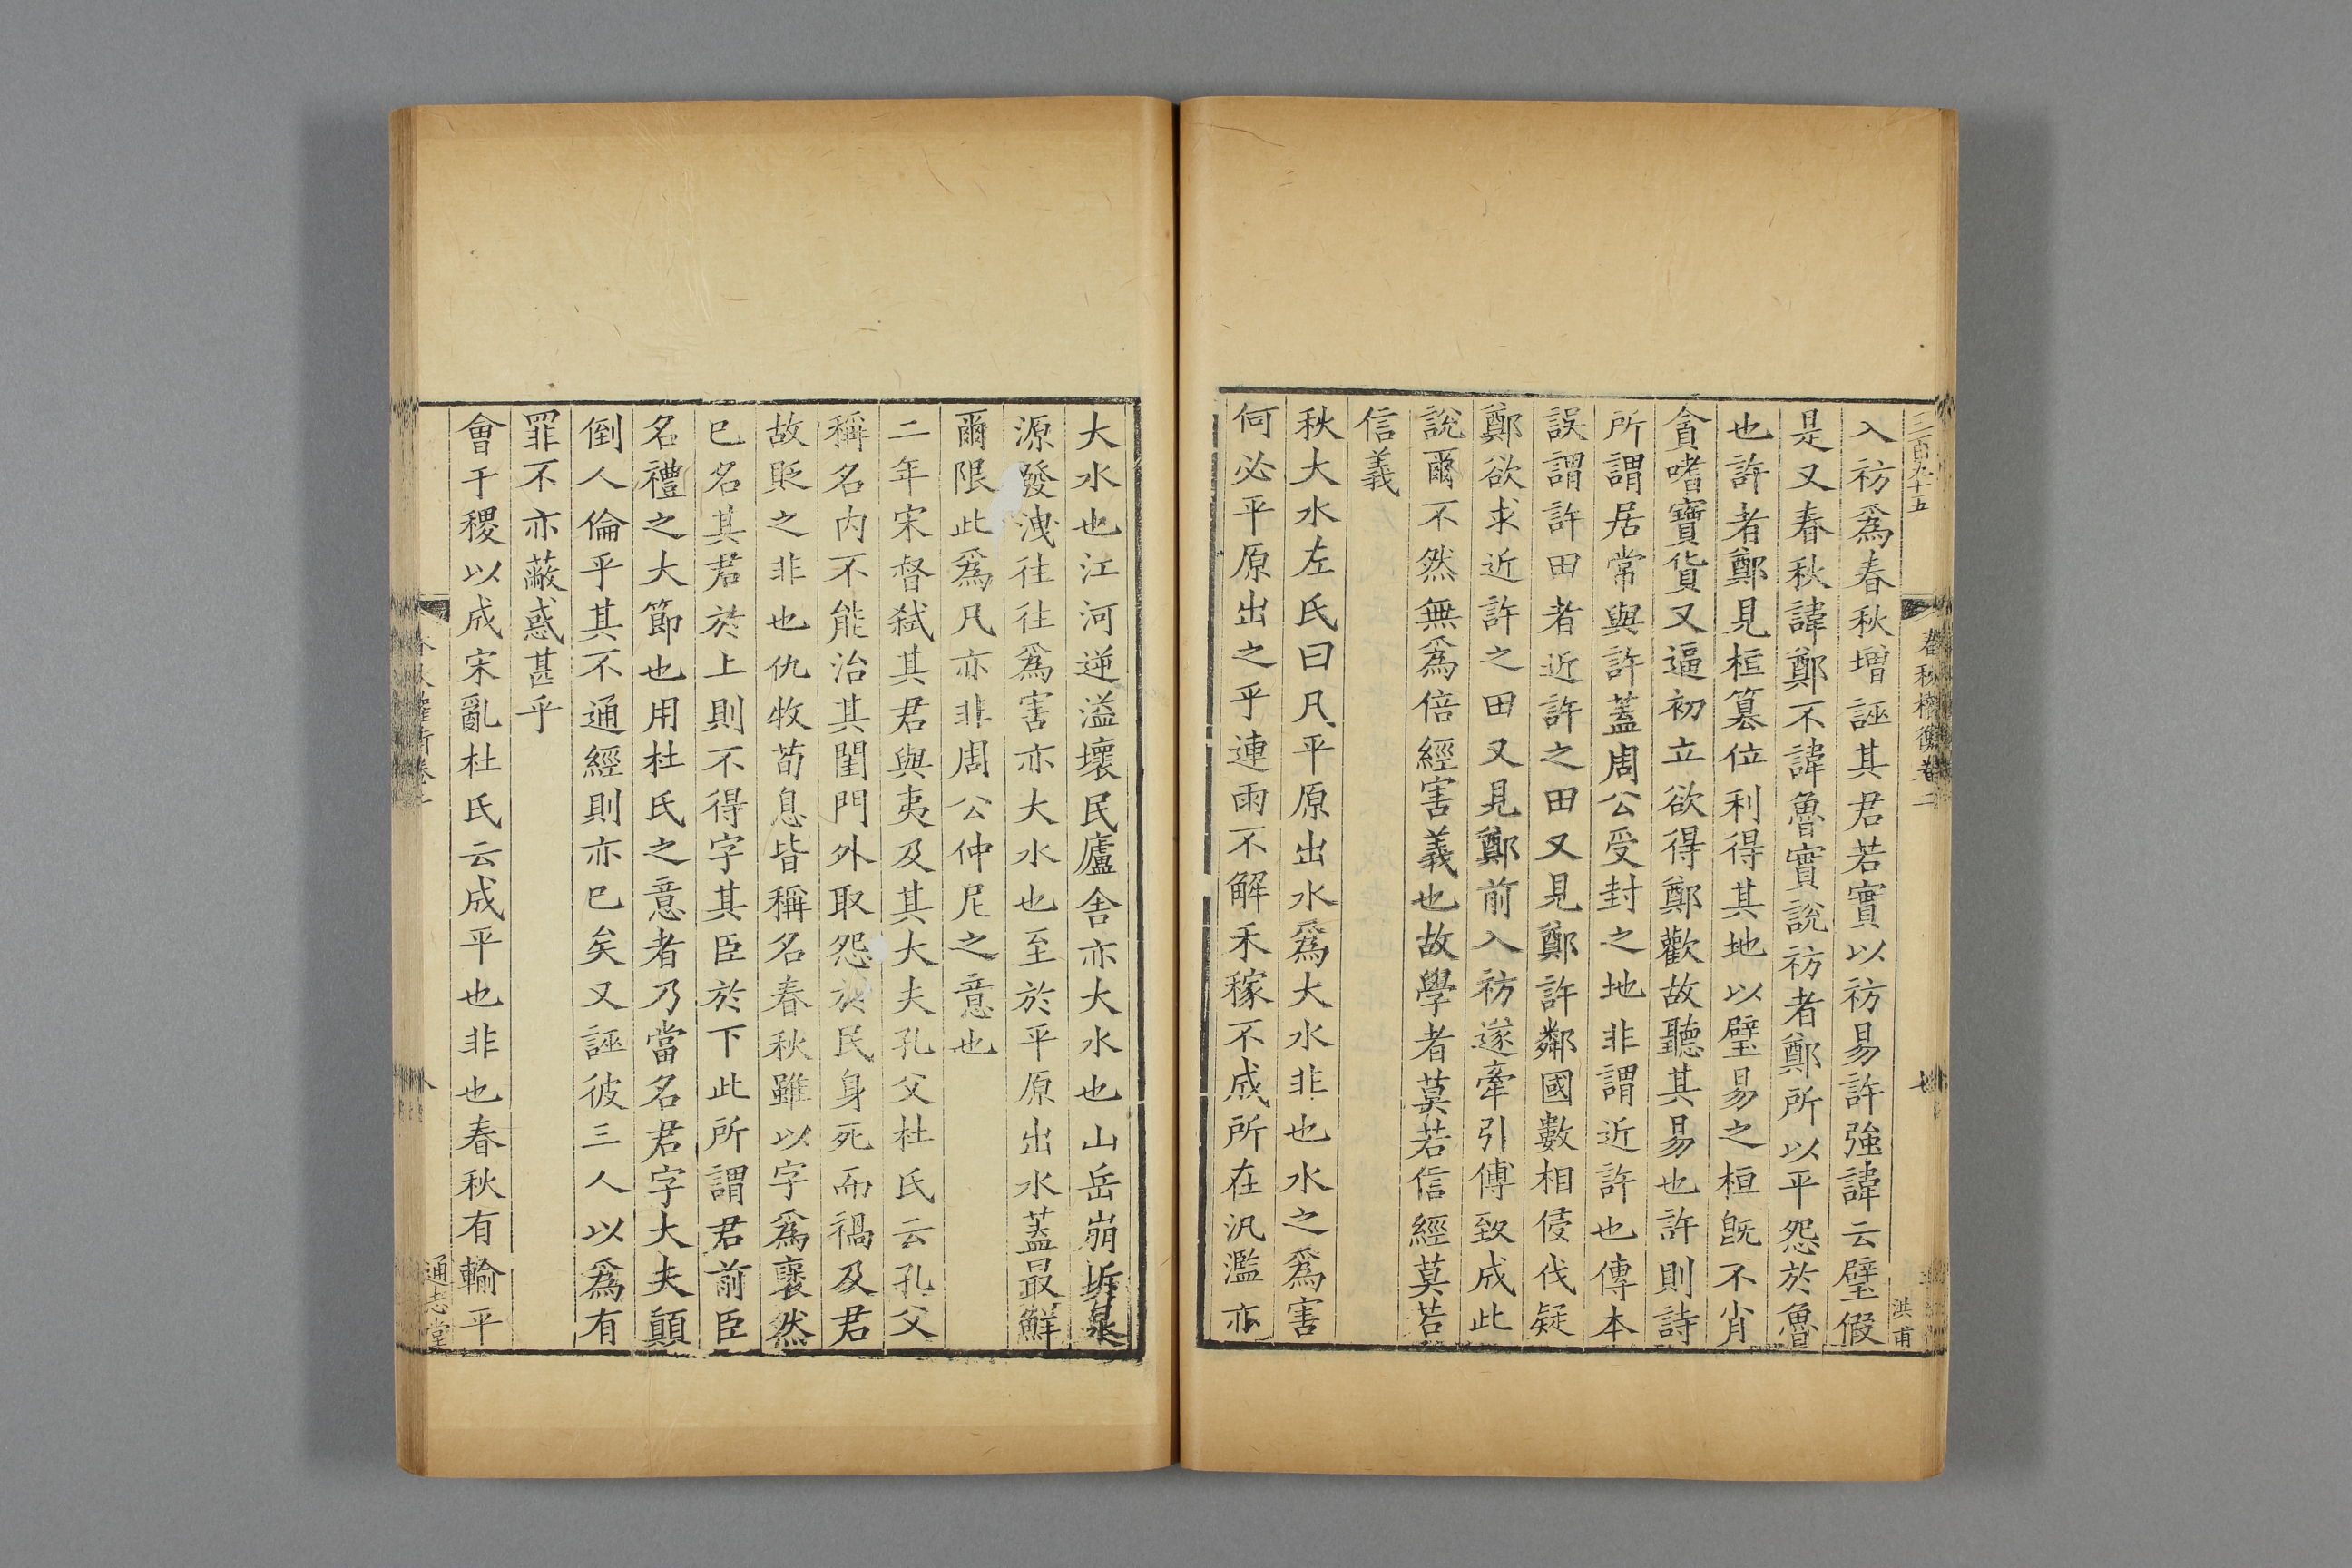 二百九十五
春秋權衡卷二
七
洪甫
入祊爲春秋增誣其君若實以祊易許強諱云璧假
是又春秋諱鄭不諱魯實說祊者鄭所以平怨於魯
也許者鄭見桓簒位利得其地以璧易之桓旣不肖
貪嗜寶貨又逼初立欲得鄭歡故聽其易也許則詩
所謂居常與許蓋周公受封之地非謂近許也傳本
誤謂許田者近許之田又見鄭許鄰國數相侵伐疑
鄭欲求近許之田又見鄭前入祊遂牽引傅致成此
說爾不然無爲倍經害義也故學者莫若信經莫若
信義
秋大水左氏曰凡平原出水爲大水非也水之爲害
何必平原出之乎連雨不解禾稼不成所在汎濫亦
大水也江河逆溢壞民廬舍亦大水也山岳崩坼泉
源發洩往往爲害亦大水也至於平原出水蓋最鮮
爾限此爲凡亦非周公仲尼之意也
二年宋督弒其君與夷及其大夫孔父杜氏云孔父
稱名內不能治其閨門外取怨於民身死而禍及君
故貶之非也仇牧荀息皆稱名春秋雖以字爲襃然
已名其君於上則不得字其臣於下此所謂君前臣
名禮之大節也用杜氏之意者乃當名君字大夫顛
倒人倫乎其不通經則亦已矣又誣彼三人以爲有
罪不亦蔽惑甚乎
會于稷以成宋亂杜氏云成平也非也春秋有輸平
春秋權衡卷二
八
通志堂